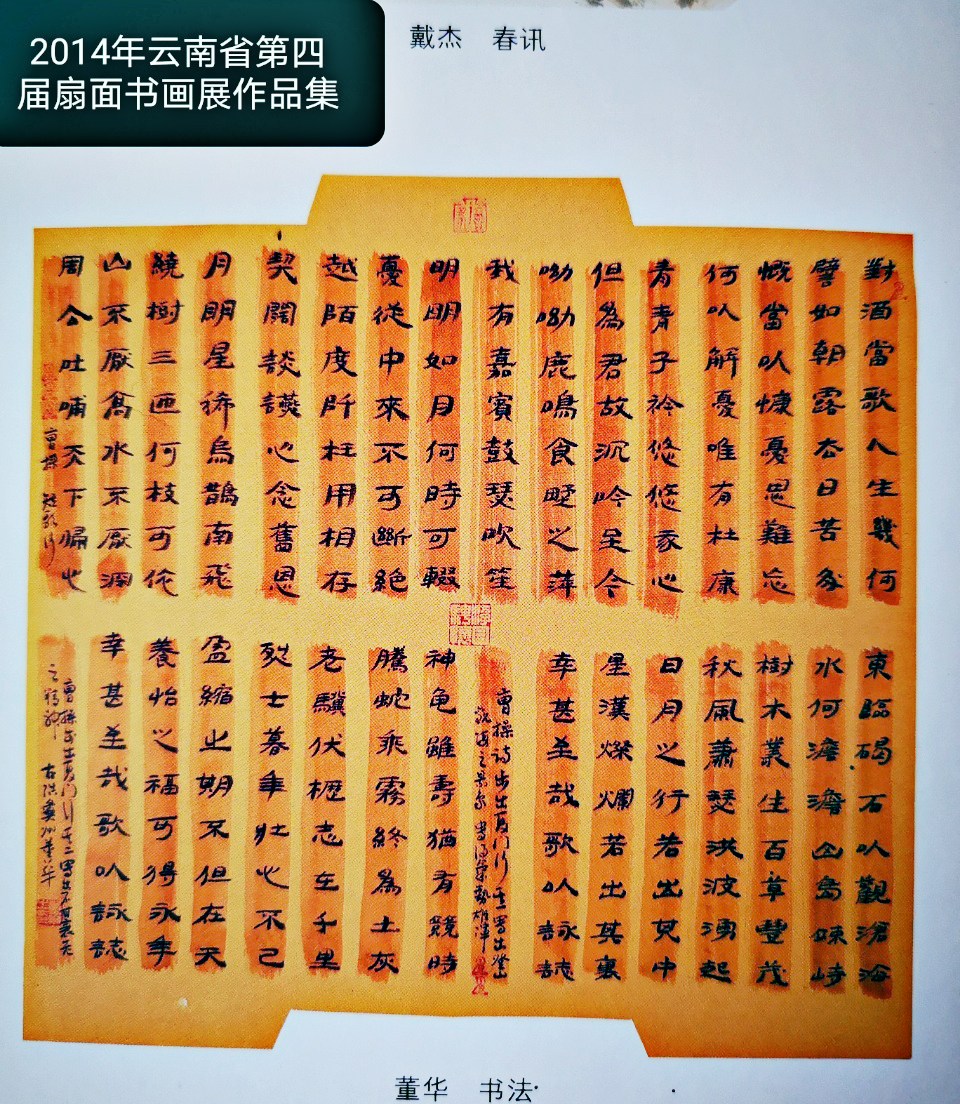 2014年云南省第四
届扇面书画展作品集
戴杰 春讯
對酒當歌人生幾何
譬如朝露去日苦多
慨當以慷憂思難忘
何以解憂唯有杜康
青青子衿悠悠我心
但為君故沉吟至今
呦呦鹿鳴食野之萍
我有嘉賓鼓瑟吹笙
明明如月何時可輟
憂從中來不可斷絕
越陌度阡枉用相存
契闊談讌心念舊恩
月明星稀烏鵲南飛
繞樹三匝何枝可依
山不厭高水不厭深
周公吐哺天下歸心
曹操 短歌行
東臨碣石以觀滄海
水何澹澹山島竦峙
樹木叢生百草豐茂
秋風蕭瑟洪波湧起
日月之行若出其中
星漢燦爛若出其裏
幸甚至哉歌以詠誌
曹操詩步出夏門行其一寫出登山
神龟雖壽猶有競時
騰蛇乘霧終為土灰
老驥伏櫪志在千里
烈士暮年壯心不已
盈縮之期不但在天
養怡之福可得永年
幸甚至哉歌以詠誌
董华 书法